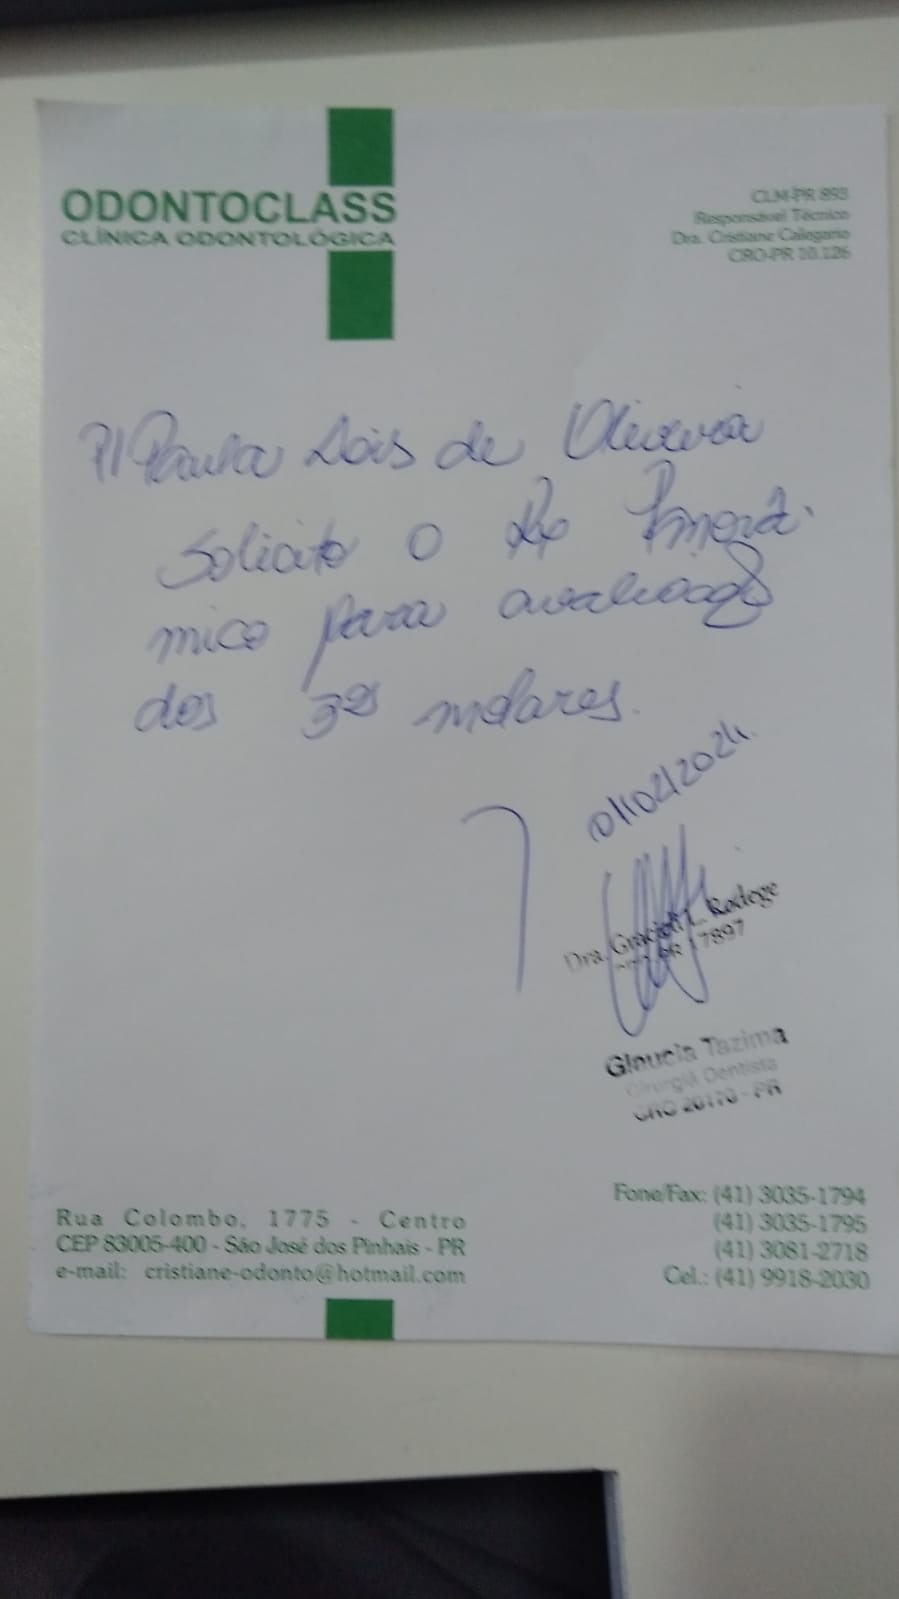 ODONTOCLASS
CLÍNICA ODONTOLÓGICA
CLM-PR 893
Responsável Técnico
Dra. Cristiane Calegario
CRO-PR 10.126
P/ Paula de Oliveira
Solicito o Rx Panorâ-
mico para avaliação
dos 3ºs molares.
01/02/2024.
Dra. L.
7897
Glaucia Tazima
Cirurgiã Dentista
CRO 20170 - PR
Rua Colombo, 1775 - Centro
CEP 83005-400 - São José dos Pinhais - PR
e-mail: cristiane-odonto@hotmail.com
Fone/Fax: (41) 3035-1794
(41) 3035-1795
(41) 3081-2718
Cel.: (41) 9918-2030